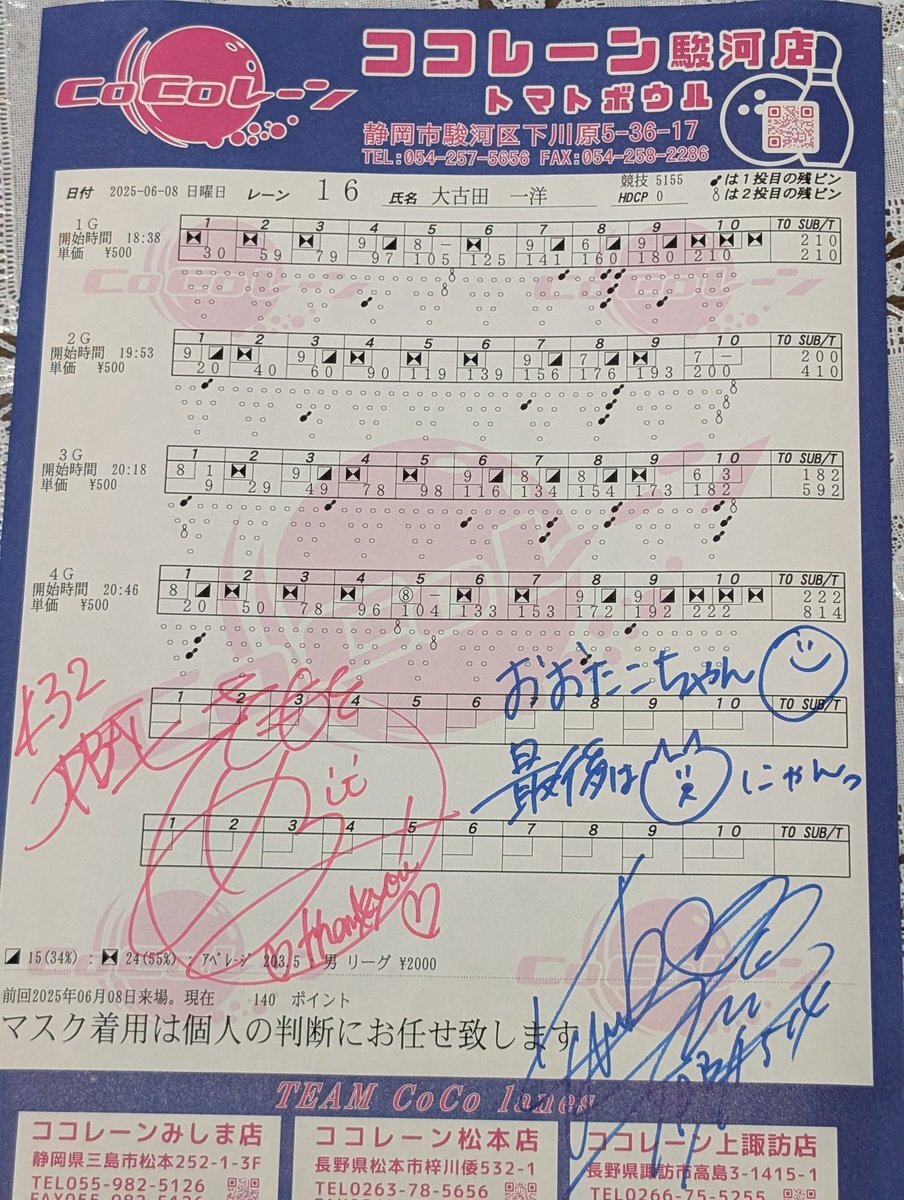 CoCoレーン
ココレーン駿河店
トマトボウル
静岡市駿河区下川原5-36-17
TEL:054-257-5656 FAX:054-258-2286
日付 2025-06-08 日曜日 レーン 16 氏名 大古田 一洋 競技 5155 HDCP 0
は1投目の残ピン
は2投目の残ピン
1G
開始時間 18:38
単価 ¥500
1 2 3 4 5 6 7 8 9 10 TO SUB/T
9 8 - 9 6 9 210
30 59 79 97 105 125 141 160 180 210 210
2G
開始時間 19:53
単価 ¥500
1 2 3 4 5 6 7 8 9 10 TO SUB/T
9 9 9 7 7 - 200
20 40 60 90 119 139 156 176 193 200 410
3G
開始時間 20:18
単価 ¥500
1 2 3 4 5 6 7 8 9 10 TO SUB/T
8 1 9 9 8 8 6 3 182
9 29 49 78 98 116 134 154 173 182 592
4G
開始時間 20:46
単価 ¥500
1 2 3 4 5 6 7 8 9 10 TO SUB/T
8 ⑧ - 9 9 222
20 50 78 96 104 133 153 172 192 222 814
おおたこちゃん
1 2 3 4 5 6 7 8 9 10 TO SUB/T
最後は にゃんっ
1 2 3 4 5 6 7 8 9 10 TO SUB/T
thank you
15(34%) : 24(55%) : アベレージ 203.5 : 男 リーグ ¥2000
前回2025年06月08日来場。現在 140 ポイント
マスク着用は個人の判断にお任せ致します
TEAM CoCo lanes
ココレーンみしま店
静岡県三島市松本252-1-3F
TEL055-982-5126
FAX055-982-5126
ココレーン松本店
長野県松本市梓川倭532-1
TEL0263-78-5656
ココレーン上諏訪店
長野県諏訪市高島3-1415-1
TEL0266-75-5255